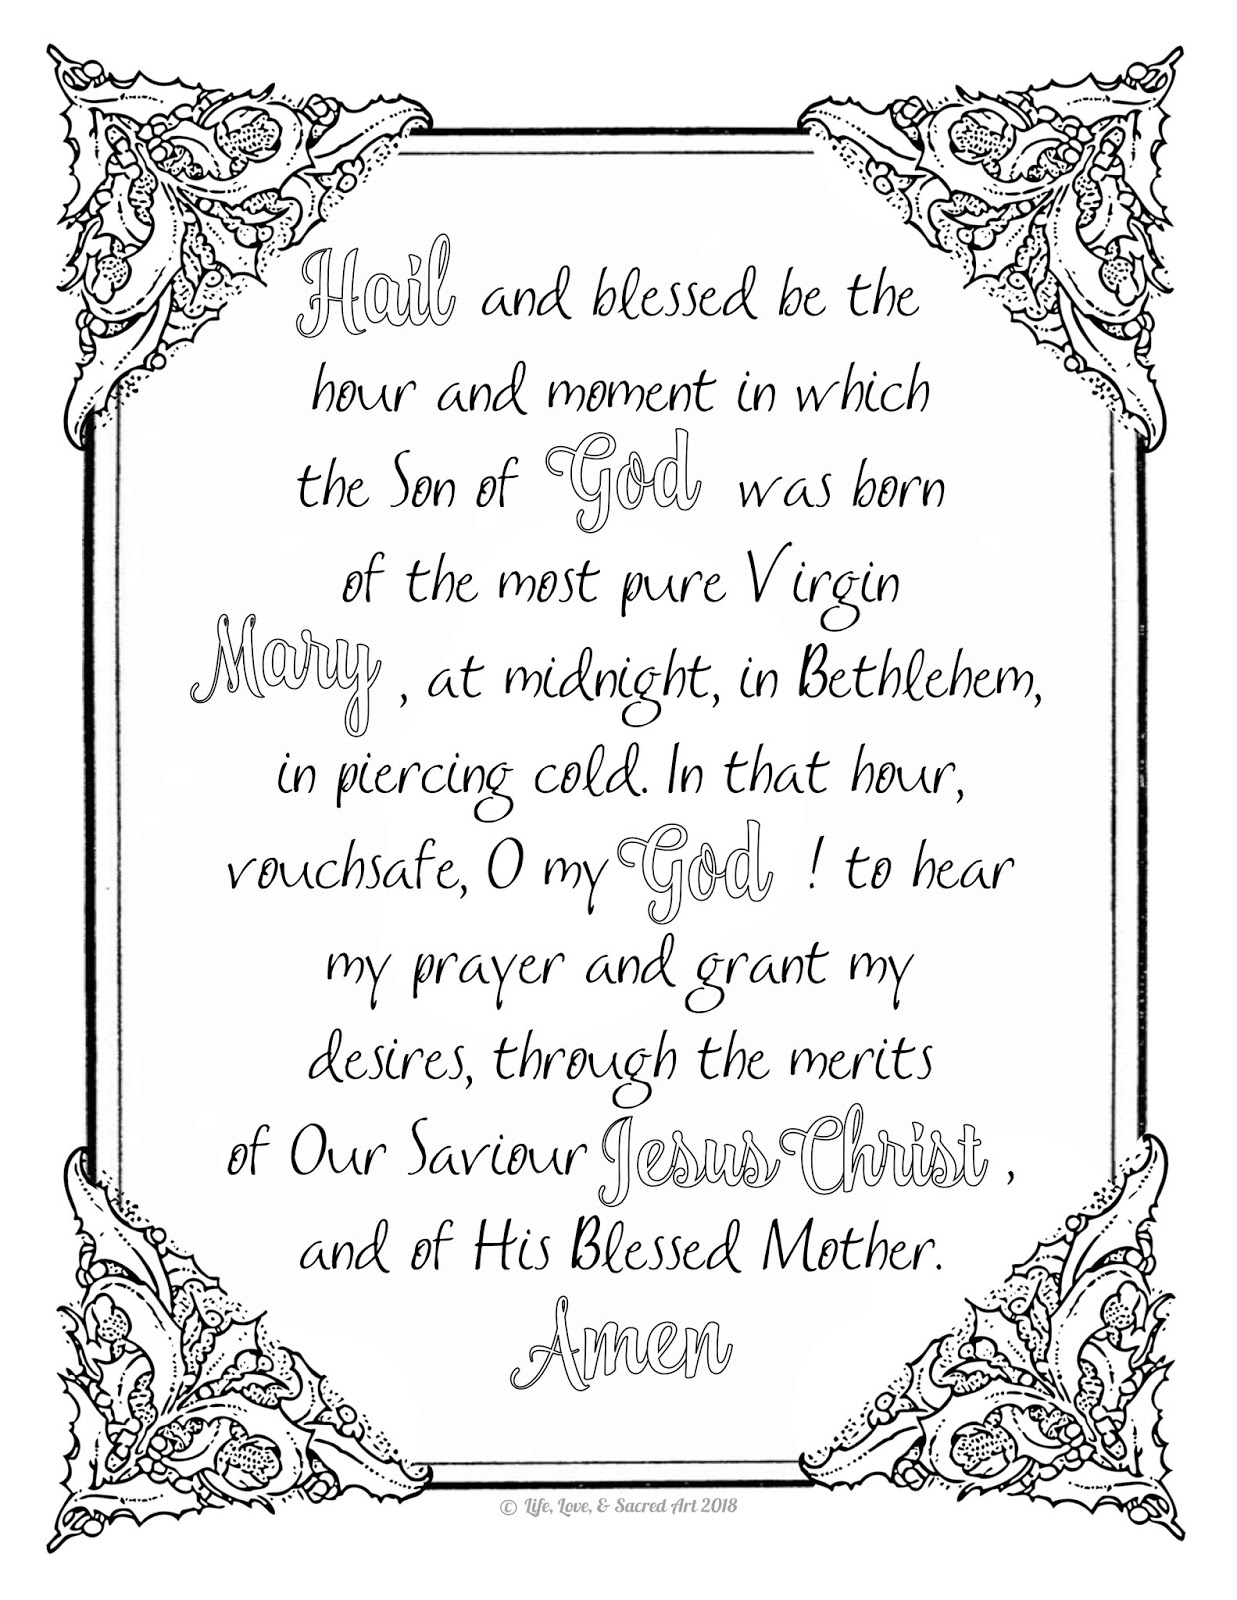 Hail and blessed be the
hour and moment in which
the Son of God was born
of the most pure Virgin
Mary, at midnight, in Bethlehem,
in piercing cold. In that hour,
vouchsafe, O my God ! to hear
my prayer and grant my
desires, through the merits
of Our Saviour Jesus Christ ,
and of His Blessed Mother.
Amen
© Life, Love, & Sacred Art 2018